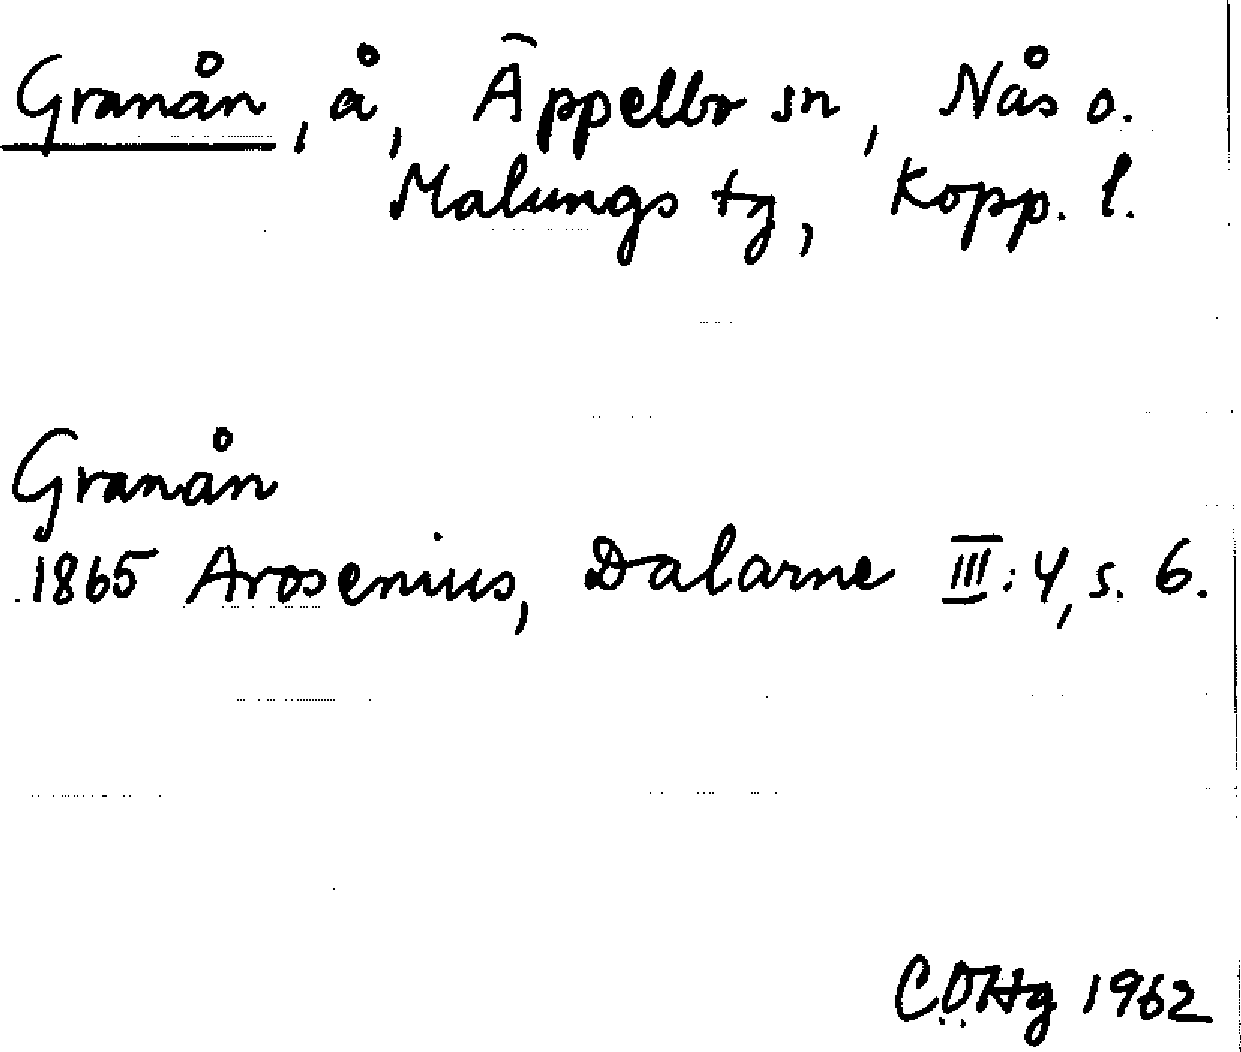 Granån, å, Äppelbo sn, Nås o.
Malungs tg, Kopp. l.
Granån
1865 Arosenius, Dalarne III:4, s. 6.
CÖHg 1962